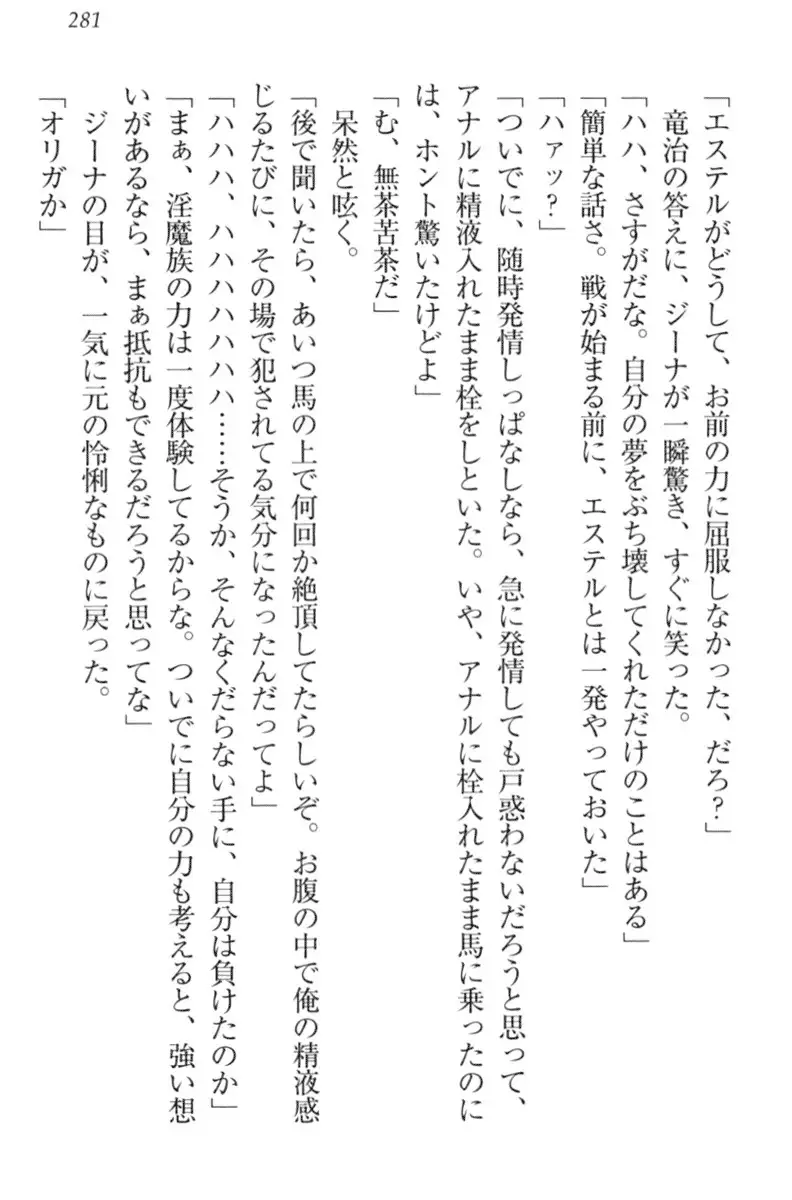 281
「エステルがどうして、お前の力に屈服しなかった、だろ？」
竜治の答えに、ジーナが一瞬驚き、すぐに笑った。
「ハハ、さすがだな。自分の夢をぶち壊してくれただけのことはある」
「簡単な話さ。戦が始まる前に、エステルとは一発やっておいた」
「ハァッ？」
「ついでに、随時発情しっぱなしなら、急に発情しても戸惑わないだろうと思って、
アナルに精液入れたまま栓をしといた。いや、アナルに栓入れたまま馬に乗ったのに
は、ホント驚いたけどよ」
「む、無茶苦茶だ」
呆然と呟く。
「後で聞いたら、あいつ馬の上で何回か絶頂してたらしいぞ。お腹の中で俺の精液感
じるたびに、その場で犯されてる気分になったんだってよ」
「ハハハ、ハハハハハハハ……そうか、そんなくだらない手に、自分は負けたのか」
「まぁ、淫魔族の力は一度体験してるからな。ついでに自分の力も考えると、強い想
いがあるなら、まぁ抵抗もできるだろうと思ってな」
ジーナの目が、一気に元の怜悧なものに戻った。
「オリガか」